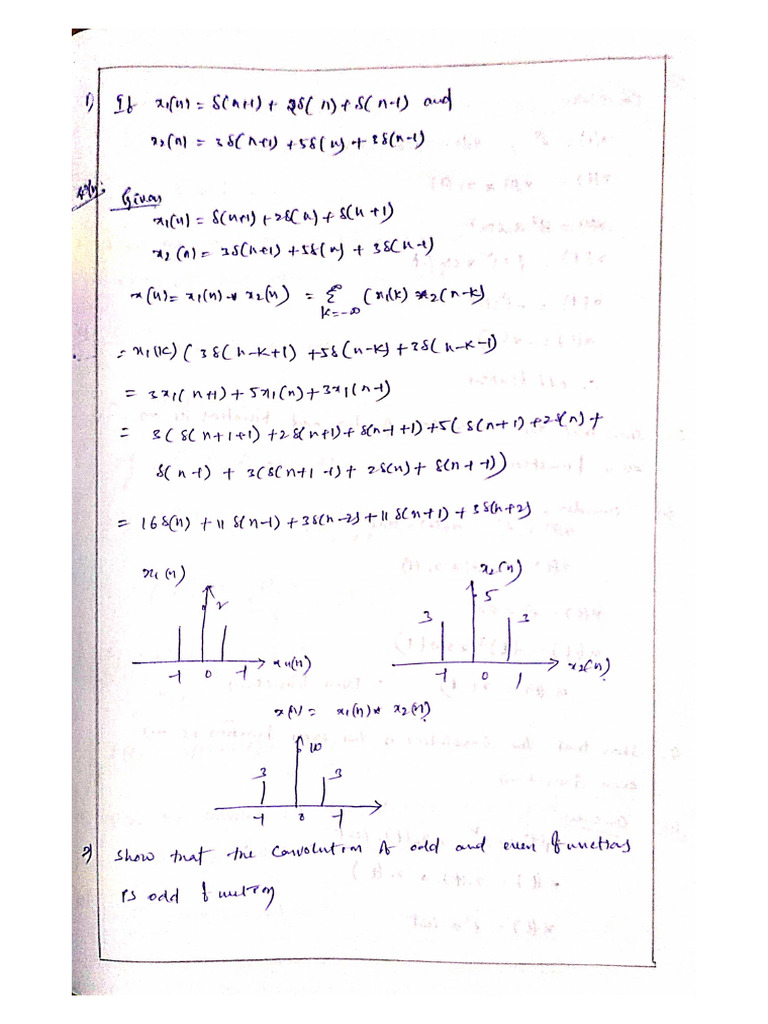 1) If x1(n) = δ(n+1) + 2δ(n) + δ(n-1) and
x2(n) = 3δ(n+1) + 5δ(n) + 3δ(n-1)
Given
x1(n) = δ(n+1) + 2δ(n) + δ(n+1)
x2(n) = 3δ(n+1) + 5δ(n) + 3δ(n-1)
x(n) = x1(n) * x2(n) = Σ k=-∞ ∞ (x1(k) * x2(n-k)
= x1(k) (3δ(n-k+1) + 5δ(n-k) + 3δ(n-k-1)
= 3x1(n+1) + 5x1(n) + 3x1(n-1)
= 3(δ(n+1+1) + 2δ(n+1) + δ(n-1+1) + 5(δ(n+1) + 2δ(n) +
δ(n-1) + 3(δ(n+1-1) + 2δ(n) + δ(n+-1))
= 16δ(n) + 11δ(n-1) + 3δ(n-2) + 11δ(n+1) + 3δ(n+2)
x1(n) x2(n)
2 5
3 3
-1 0 -1 x1(n) -1 0 1 x2(n)
x(n) = x1(n) * x2(n)
10
3 3
-1 0 -1
2) Show that the Convolution of odd and even functions
is odd function